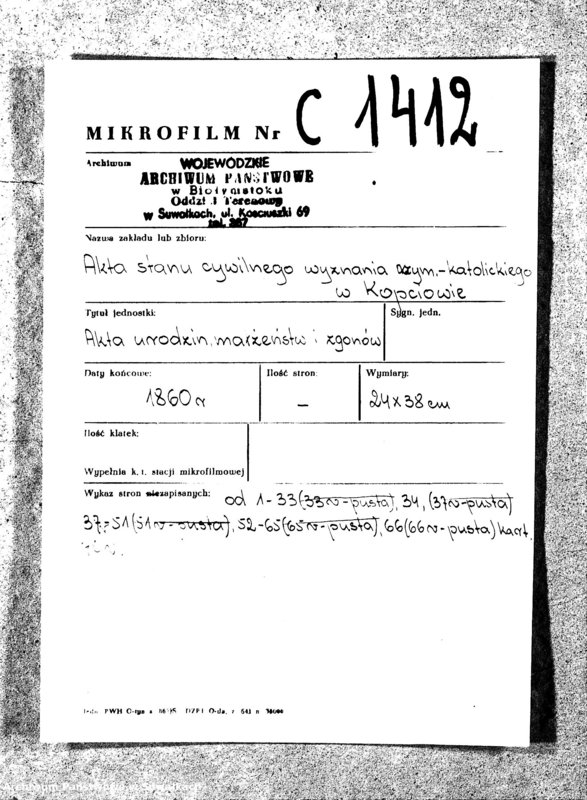 MIKROFILM Nr C 1412
Archiwum
WOJEWÓDZKIE
ARCHIWUM PAŃSTWOWE
w Białymstoku
Oddział Terenowy
w Suwałkach, ul. Kościuszki 69
tel. 367
Nazwa zakładu lub zbioru:
Akta stanu cywilnego wyznania rzym.-katolickiego
w Kopciowie
Tytuł jednostki:
Sygn. jedn.
Akta urodzin, małżeństw i zgonów
Daty końcowe:
Ilość stron:
Wymiary:
1860 r
–
24 x 38 cm
Ilość klatek:
Wypełnia k. t. stacji mikrofilmowej
Wykaz stron niezapisanych:
od 1-33 (33v-pusta), 34, (37v-pusta)
37-51 (51v-pusta), 52-65 (65v-pusta), 66 (66v-pusta) kart.
Archiwum Państwowe w Suwałkach